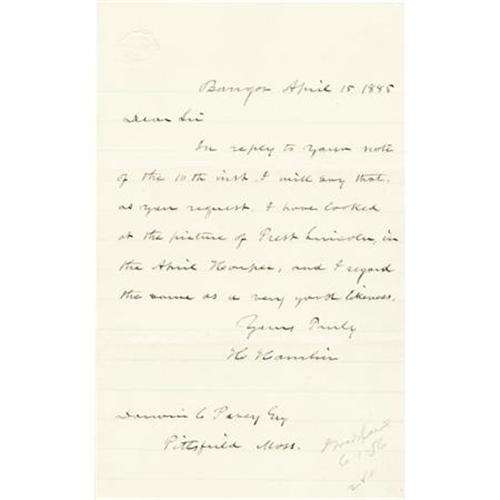 Bangor April 15 1885
Dear Sir
In reply to your note
of the 10.th inst. I will say that,
as you request, I have looked
at the picture of Prest Lincoln, in
the April Harper, and I regard
the same as a very good likeness.
Yours Truly
H Hamlin
C Pavey Esq
Pittsfield Mass.